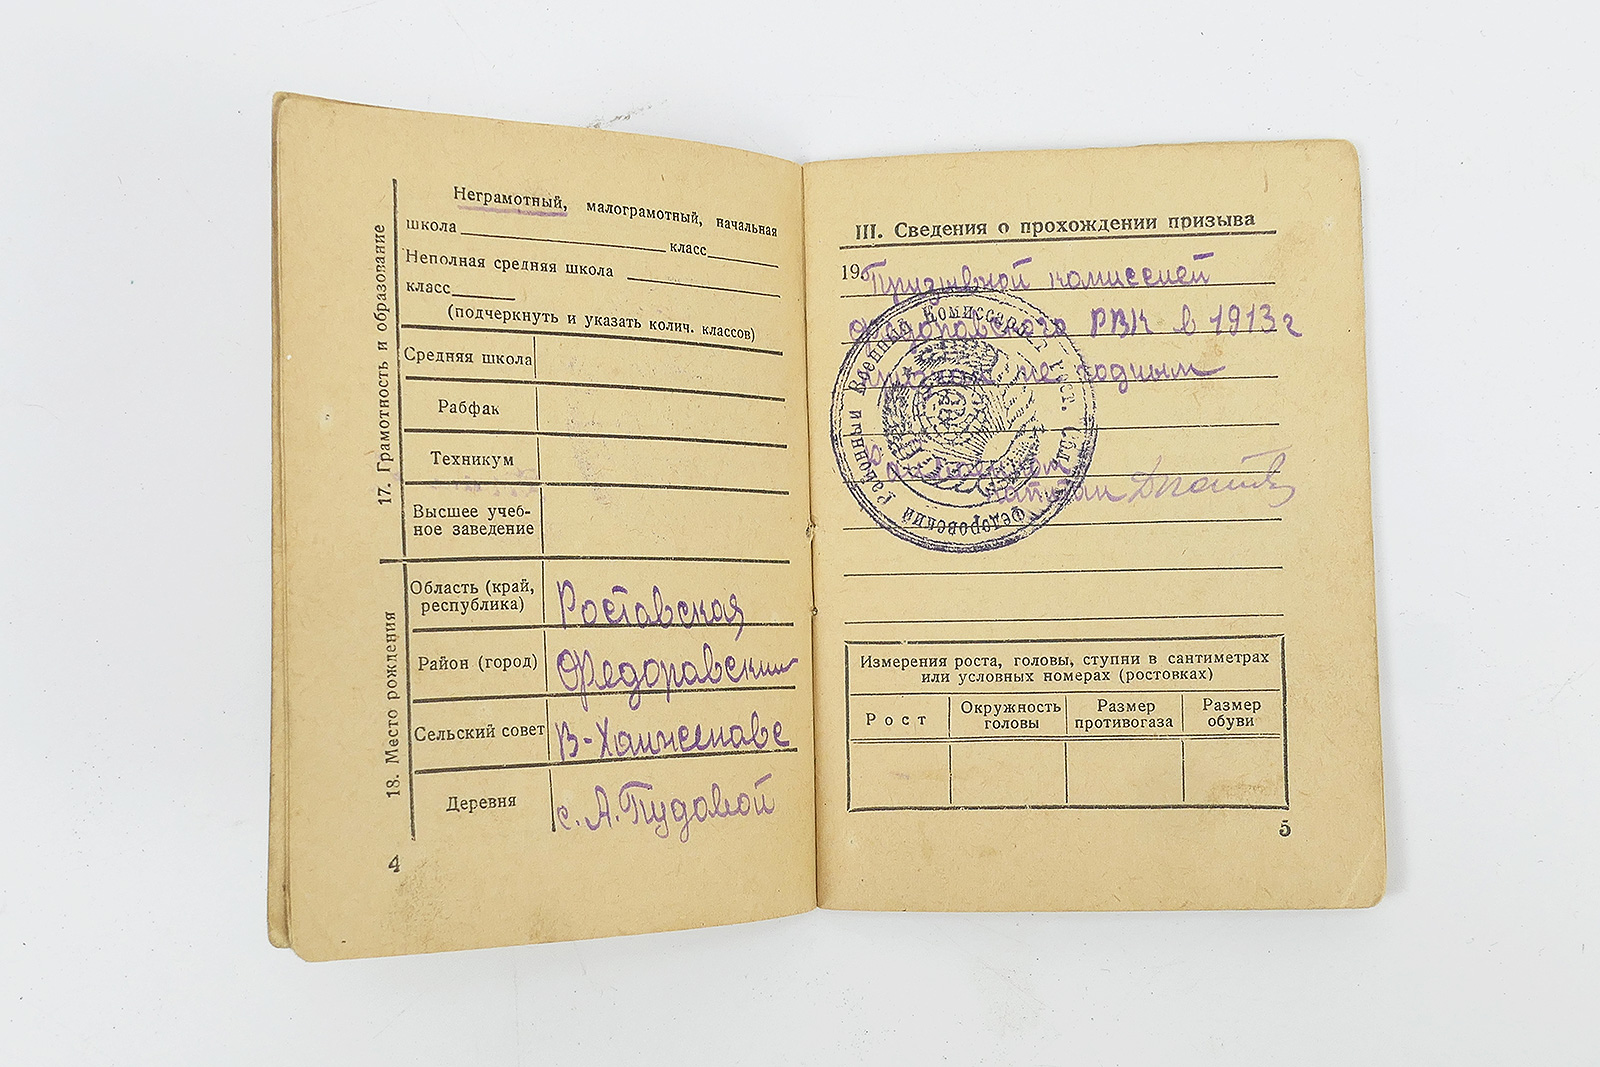 17. Грамотность и образование
Неграмотный, малограмотный, начальная
школа класс
Неполная средняя школа
класс
(подчеркнуть и указать колич. классов)
Средняя школа
Рабфак
Техникум
Высшее учеб-
ное заведение
18. Место рождения
Область (край,
республика)
Ростовская
Район (город)
Федоравский
Сельский совет
В-Ханженаве
Деревня
с. А. Пудовой
4
III. Сведения о прохождении призыва
19 Призывной комиссией
Федоравского РВК в 1913 г
не годным
капитан
Районный Военный Комиссариат Рост. Обл.
Федоровский
Измерения роста, головы, ступни в сантиметрах
или условных номерах (ростовках)
Рост
Окружность
головы
Размер
противогаза
Размер
обуви
5